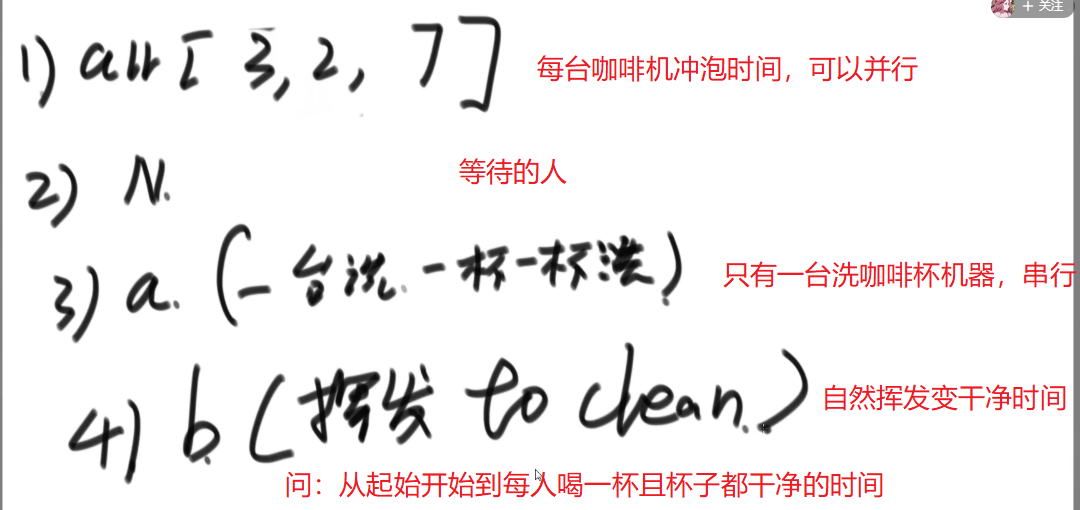 + 关注
1) arr [ 3, 2, 7 ] 每台咖啡机冲泡时间，可以并行
2) N. 等待的人
3) a. (一台洗.一杯一杯洗) 只有一台洗咖啡杯机器，串行
4) b (挥发 to clean.) 自然挥发变干净时间
问：从起始开始到每人喝一杯且杯子都干净的时间